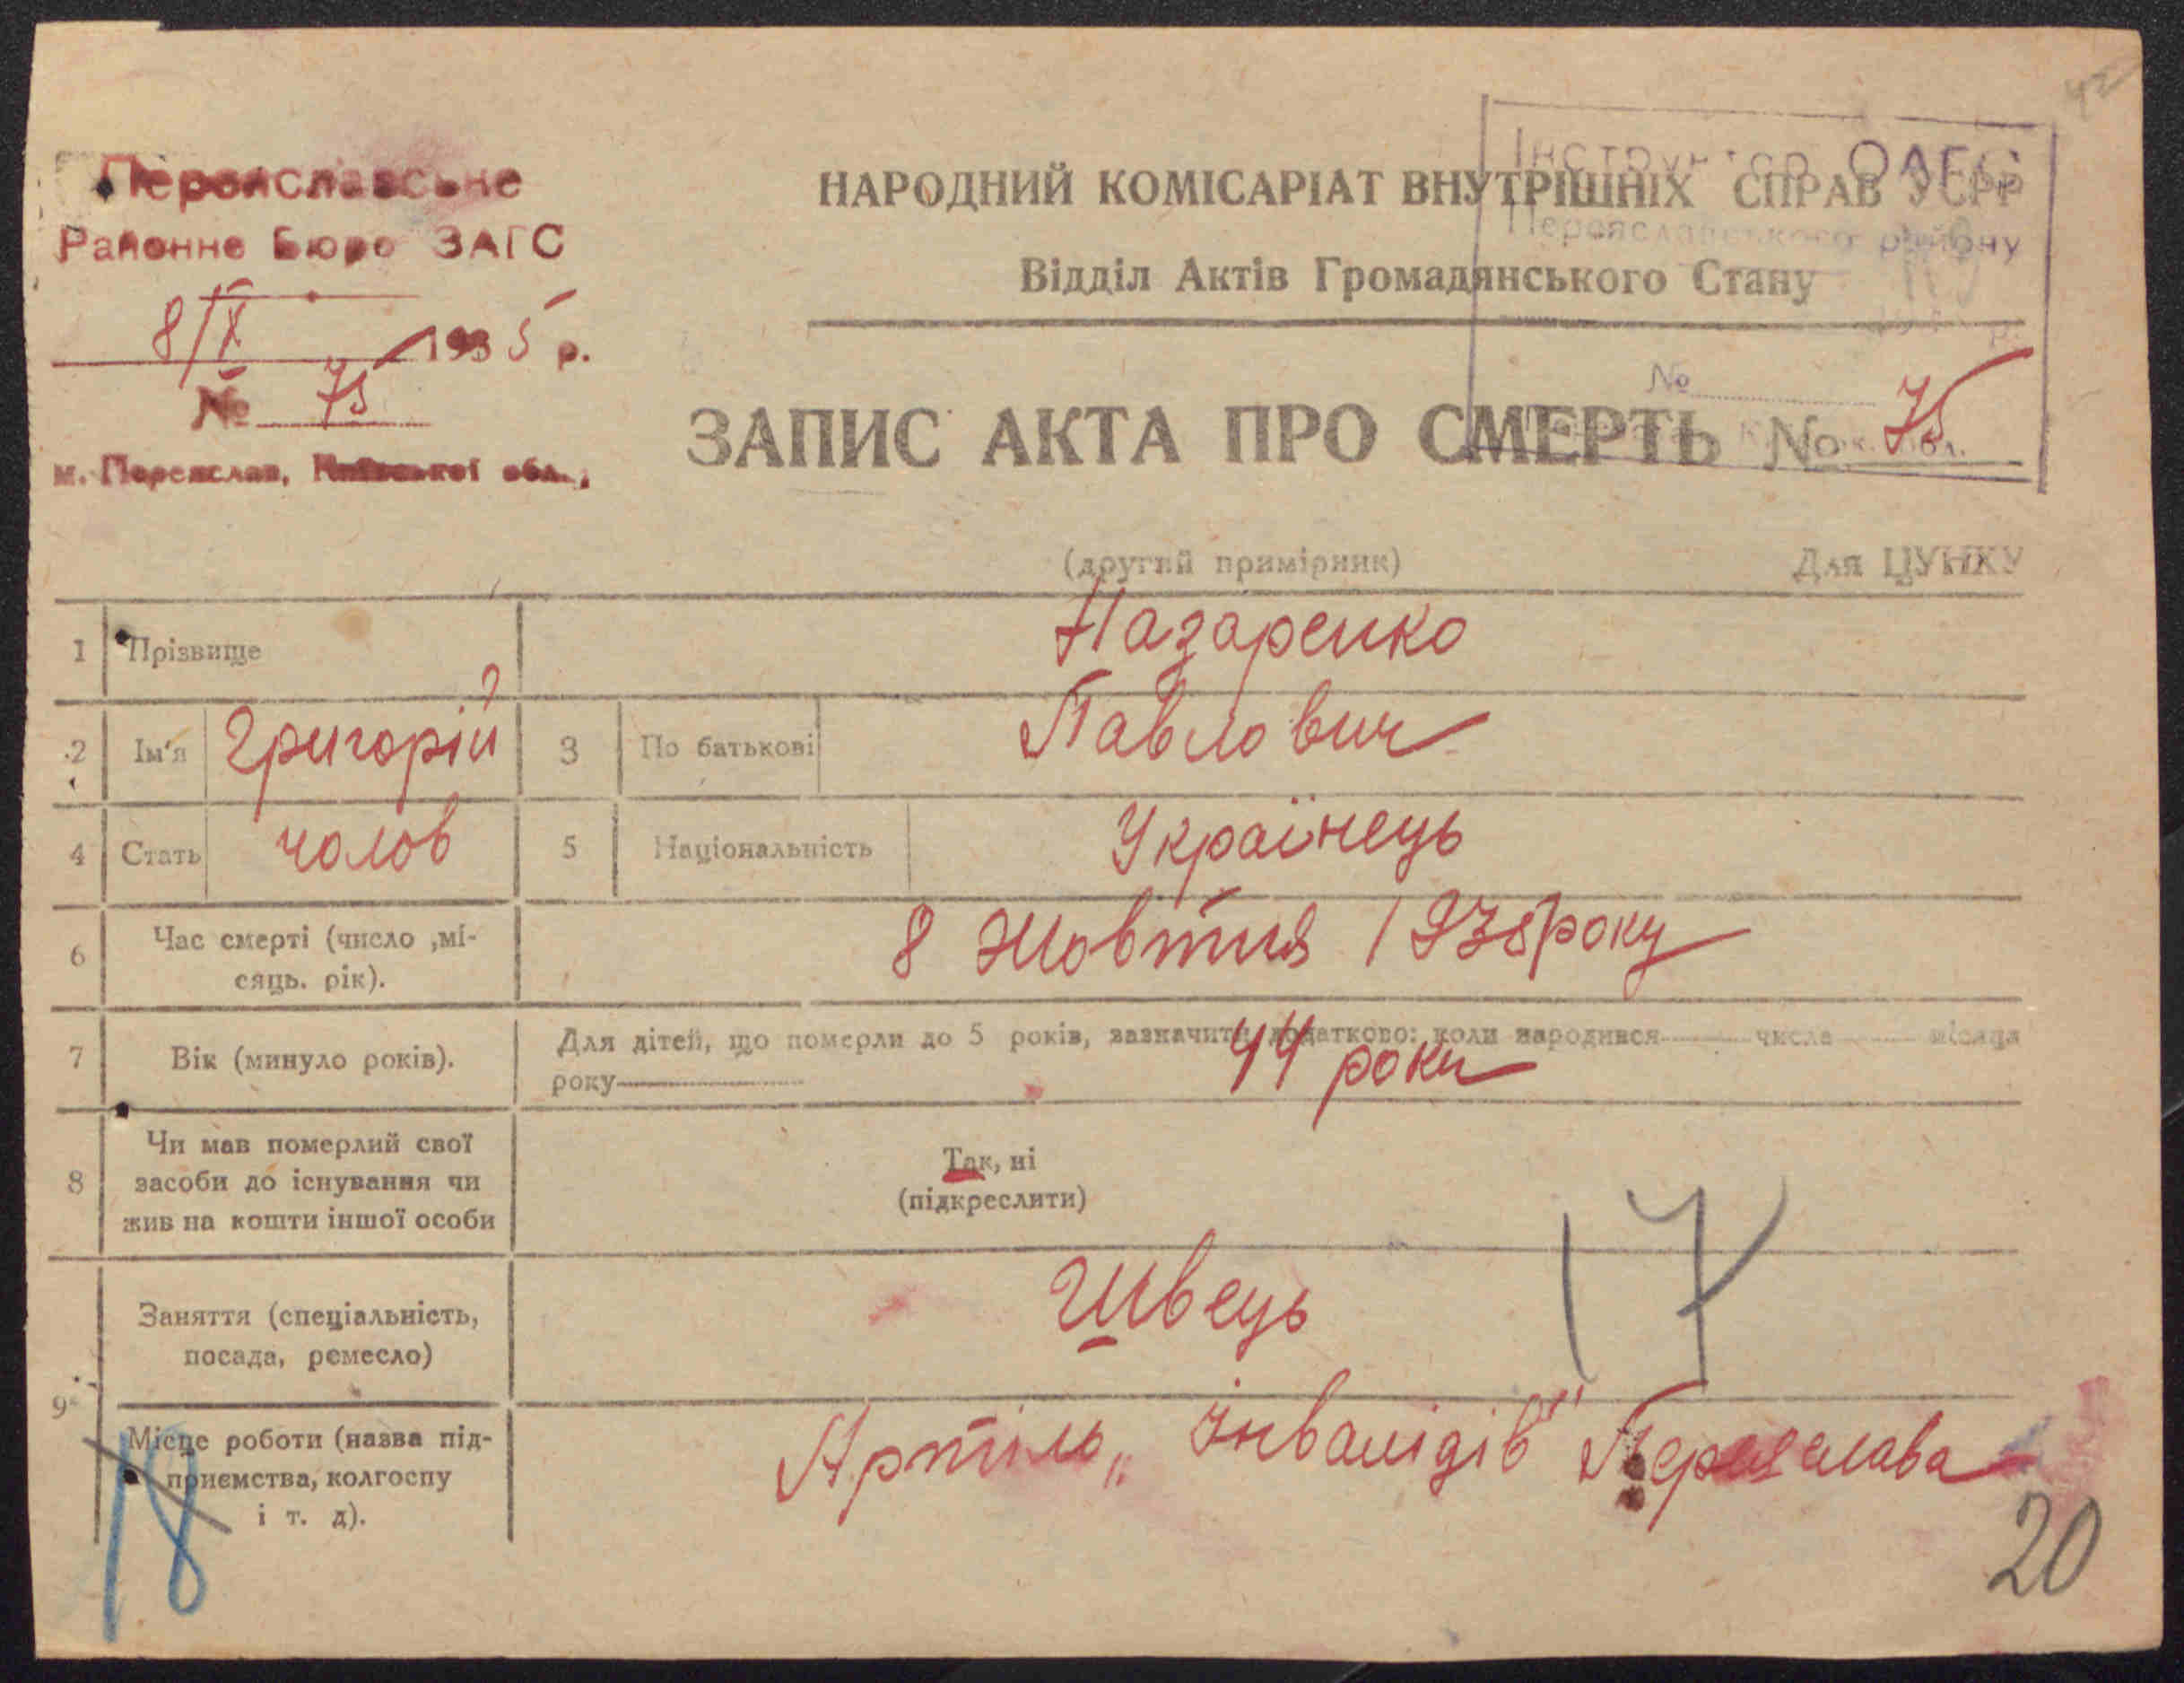 42
Переяславське
Районне Бюро ЗАГС
8/X 1935 р.
№ 75
м. Переяслав, Київської обл.,
НАРОДНИЙ КОМІСАРІАТ ВНУТРІШНІХ СПРАВ УСРР
Відділ Актів Громадянського Стану
Інструктор ОАГС
Переяславського району
№
ЗАПИС АКТА ПРО СМЕРТЬ № 75
(другий примірник) Для ЦУНКУ
1 Прізвище Назаренко
2 Ім'я Григорій 3 По батькові Павлович
4 Стать чолов 5 Національність Українець
6 Час смерті (число ,мі-
сяць. рік). 8 Жовтня 1935 року
7 Вік (минуло років). Для дітей, що померли до 5 років, зазначити додатково: коли народився числа місяця
року 44 роки
8 Чи мав померлий свої
засоби до існування чи
жив на кошти іншої особи
Так, ні
(підкреслити)
9 Заняття (спеціальність,
посада, ремесло) Швець
17
Місце роботи (назва під-
приємства, колгоспу
і т. д). Артіль „Інвалідів" Переяслава
18
20